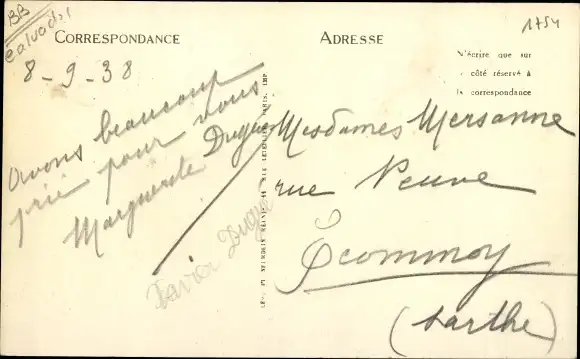 BB
Calvados
1754
CORRESPONDANCE
ADRESSE
N'écrire que sur
le côté réservé à
la correspondance
8-9-38
Avons beaucoup
prié pour vous
Marguerite Dugué
Xavier Dugué
Mesdames Mersanne
rue Neuve
Ecommoy
(Sarthe)